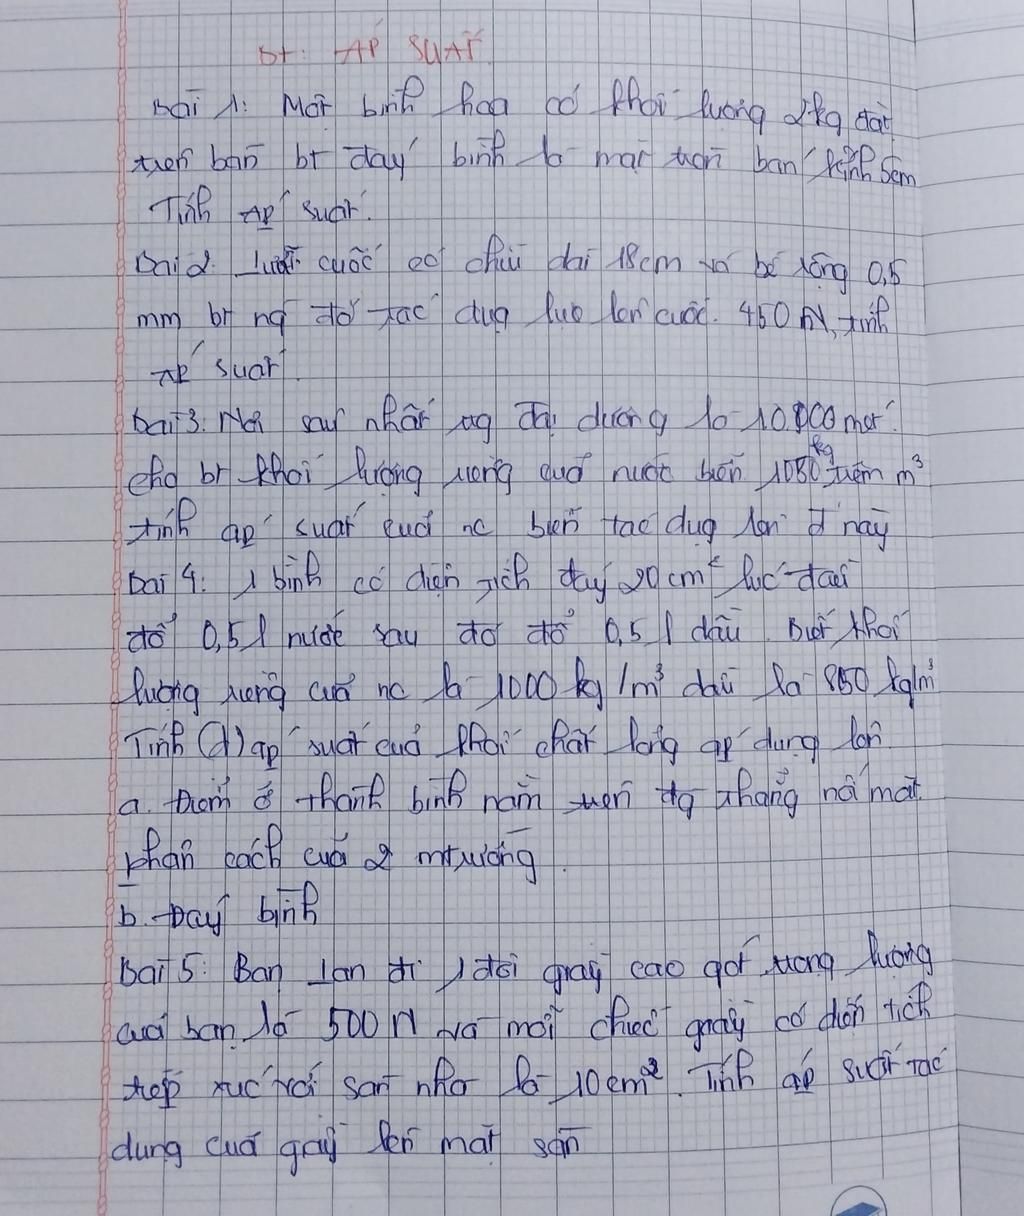 bt: ÁP SUẤT
Bài 1: Một bình hoa có khối lượng 2kg đặt
trên bàn bt đáy bình là mặt tròn bán kính 5cm
Tính áp suất.
Bài 2. Lưỡi cuốc có chiều dài 18cm và bề rộng 0,5
mm bt ng đó tác dụg lực lên cuốc. 450 N, tính
áp suất
Bài 3: Nơi sâu nhất ng Đại dương là 10.000 mét.
cho bt khối lượng riêng của nước biển 1030 kg trên m³
tính áp suất của nc biển tác dụg lên ở này
Bài 4: 1 bình có diện tích đáy 20cm² lúc đầu
đổ 0,5 l nước sau đó đổ 0,5 l dầu. Biết khối
lượng riêng của nc là 1000 kg/m³ dầu là 850 kg/m³
Tính (d) áp suất của khối chất lỏng áp dụng lên
a. Điểm ở thành bình nằm trên đg thẳng nối mặt
phân cách của 2 mtrường.
b. Đáy bình
Bài 5: Bạn Lan đi 1 đôi giày cao gót trọng lượng
của bạn là 500 N và mỗi chiếc giày có diện tích
tiếp xúc với sàn nhà là 10cm². Tính áp suất tác
dụng của giày lên mặt sàn